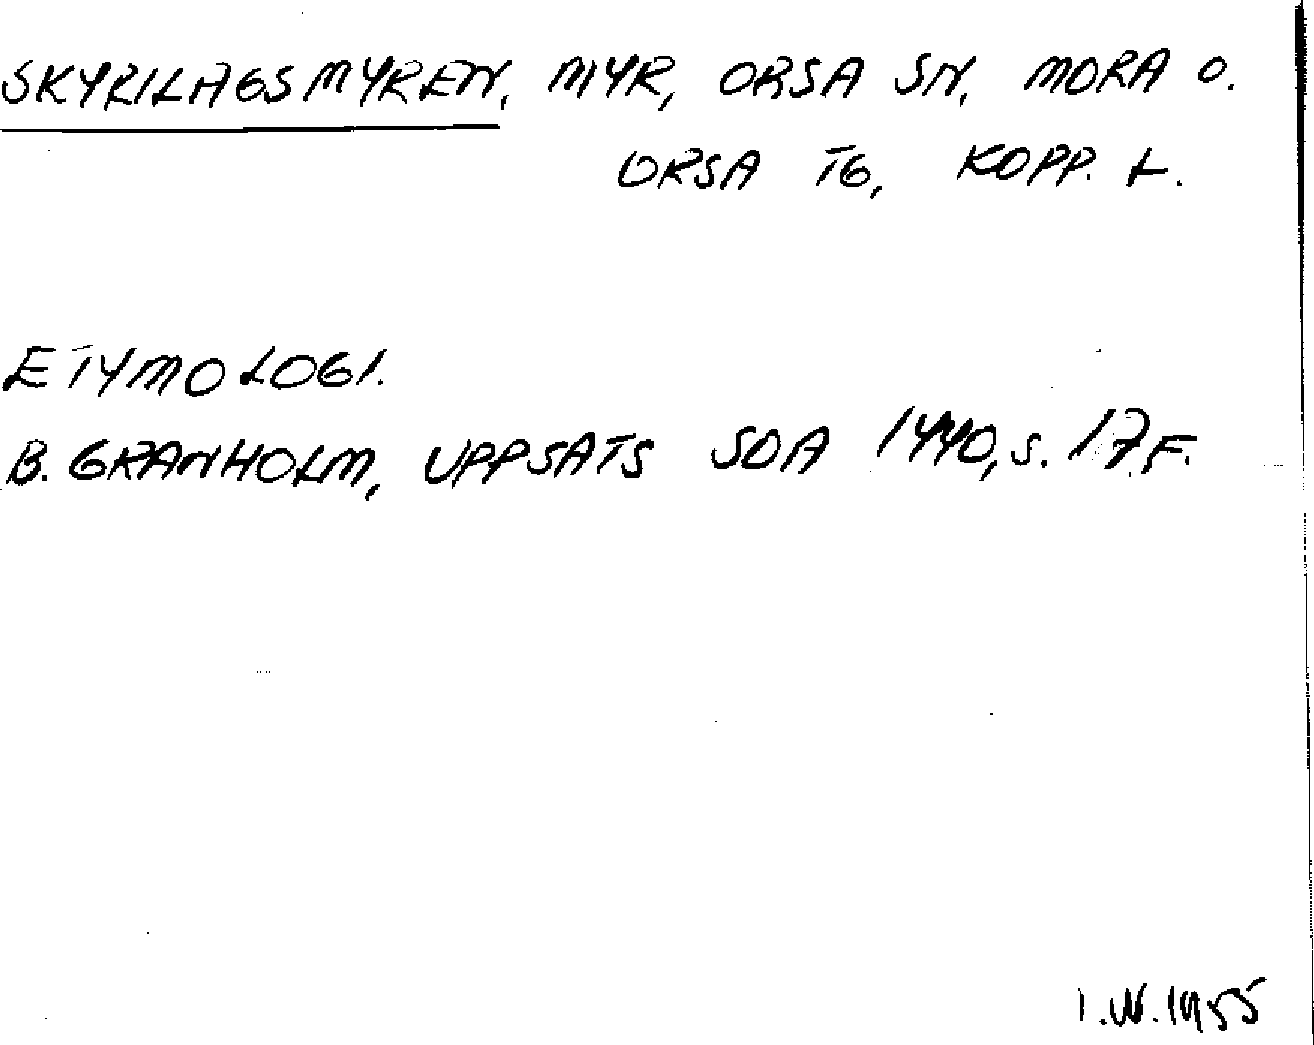 SKYRILAGSMYREN, MYR, ORSA SN, MORA O.
ORSA TG, KOPP. L.
ETYMOLOGI.
B. GRANHOLM, UPPSATS SOA 1440, S. 17 F.
I.W. 1955